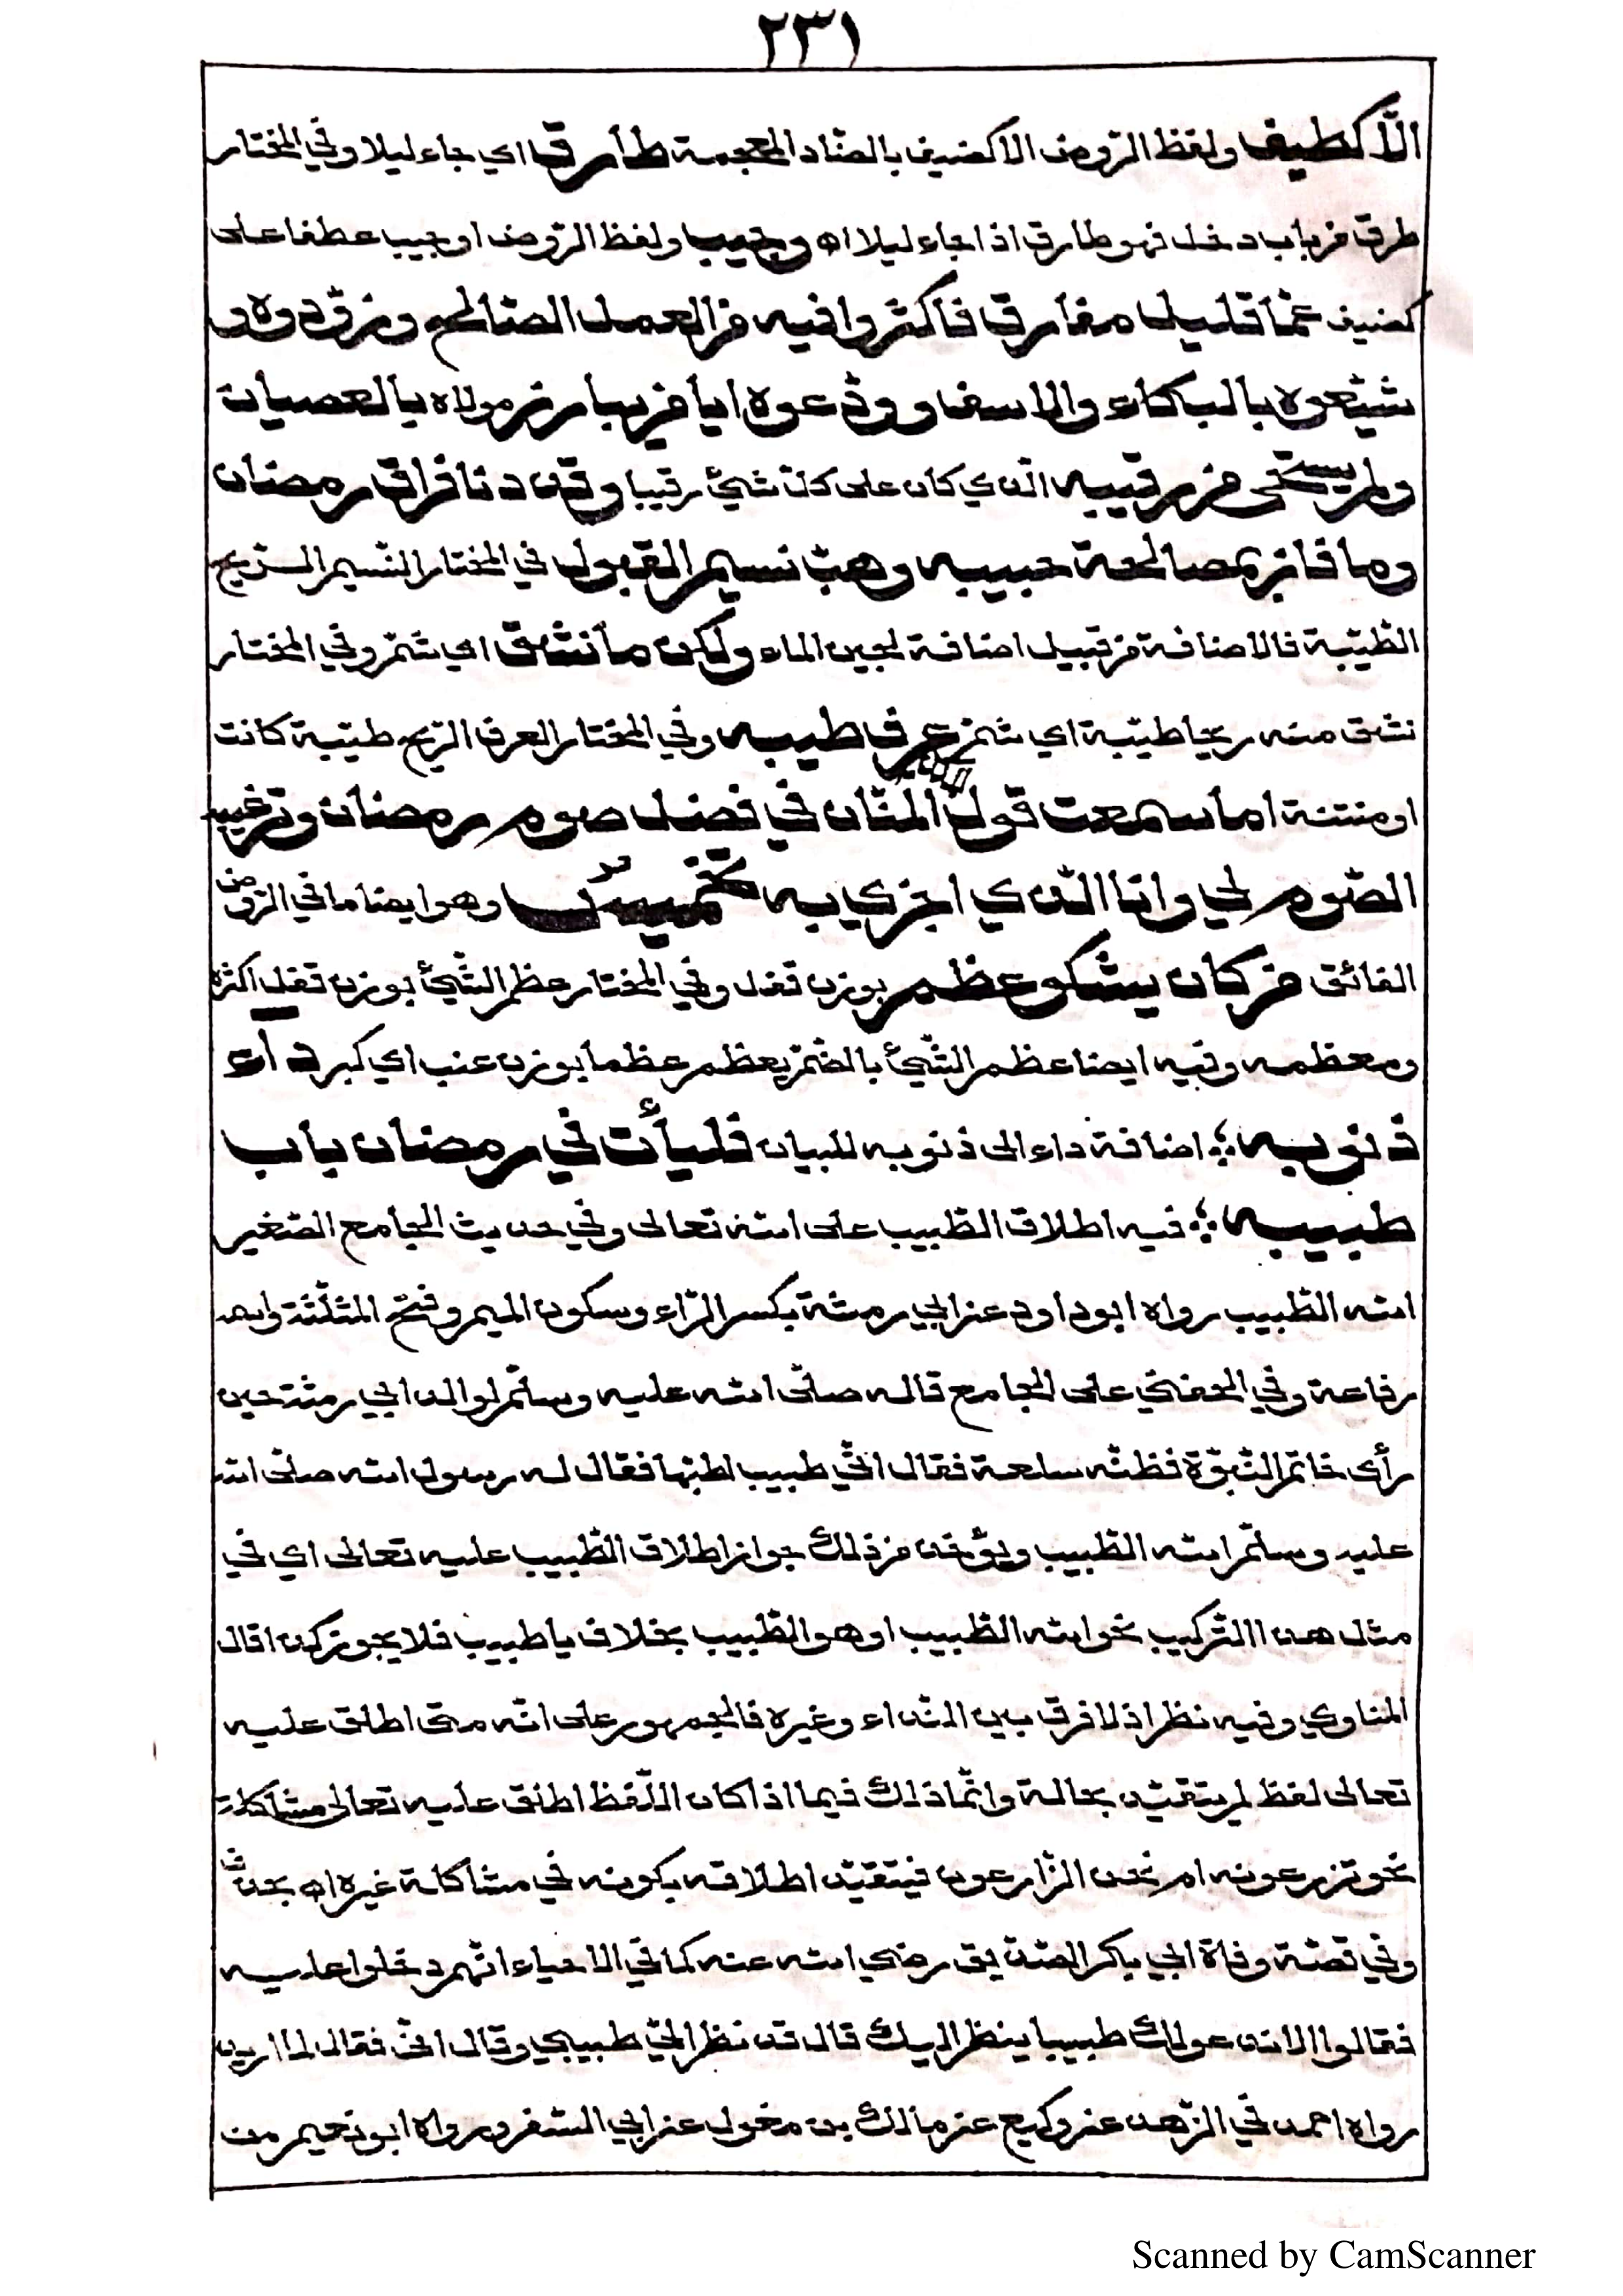 ٢٣١
الّا كطيف ولفظ الرّوض الا كضيف بالضّاد المعجمة طارق اي جاء ليلا وفي المختار
طرق من باب دخل فهو طارق اذا جاء ليلا اه وحبيب ولفظ الرّوض او حبيب عطفا على
كضيف عمّا قليل مفارق فاكثروا فيه من العمل الصّالح وزوّدوه و
شيّعوه بالبكاء والاسف وودّعوه ايا من بارز مولاه بالعصيان
ولم يستحى من رقيبه الّذي كان على كلّ شيئ رقيبا وقد دنا فراق رمضان
وما فاز بمصالحة حبيبه وهبّ نسيم القبول في المختار النّسيم الرّيح
الطّيّبة فالاضافة من قبيل اضافة لجين الماء ولكن ما نشق اي شمّ وفي المختار
نشق منه ريحا طيّبة اي شمّ من عرف طيبه وفي المختار العرف الرّيح طيّبة كانت
او منتنة اما سمعت قول المنّان في فضل صوم رمضان وترغيبه
الصّوم لي وانا الّذي اجزي به تخميس وهو ايضا ما في الرّوض
الفائق من كان يشكو عظم بوزن قفل وفي المختار عظم الشّيئ بوزن قفل اكثره
ومعظمه وفيه ايضا عظم الشّيئ بالضّمّ يعظم عظما بوزن عنب اي كبر داء
ذنوبه ؞ اضافة داء الى ذنوبه للبيان فليأت في رمضان باب
طبيبه ؞ فيه اطلاق الطّبيب على الله تعالى وفي حديث الجامع الصّغير
الله الطّبيب رواه ابو داود عن ابي رمثة بكسر الرّاء وسكون الميم وفتح المثلّثة واسمه
رفاعة وفي الحفني على الجامع قاله صلّى الله عليه وسلّم لوالد ابي رمثة حين
رأى خاتم النّبوّة فظنّه سلعة فقال انّي طبيب اطبّها فقال له رسول الله صلّى الله
عليه وسلّم الله الطّبيب ويؤخذ من ذلك جواز اطلاق الطّبيب عليه تعالى اي في
مثل هذا التركيب نحو الله الطّبيب او هو الطّبيب بخلاف يا طبيب فلا يجوز كذا قال
المناوي وفيه نظر اذ لا فرق بين النّداء وغيره فالجمهور على انّه متى اطلق عليه
تعالى لفظ لم يتقيّد بحالة وانّما ذلك فيما اذا كان اللّفظ اطلق عليه تعالى مشاكلة
نحو تزرعونه ام نحن الزّارعون فيتقيّد اطلاقه بكونه في مشاكلة غيره اه بحذف
وفي قصّة وفاة ابي بكر الصّدّيق رضي الله عنه كما في الاحياء انّهم دخلوا عليه
فقالوا الا ندعو لك طبيبا ينظر اليك قال قد نظر اليّ طبيبي وقال انّي فعّال لما اريد
رواه احمد في الزّهد عن وكيع عن مالك بن مغول عن ابي السّفر ورواه ابو نعيم من
Scanned by CamScanner